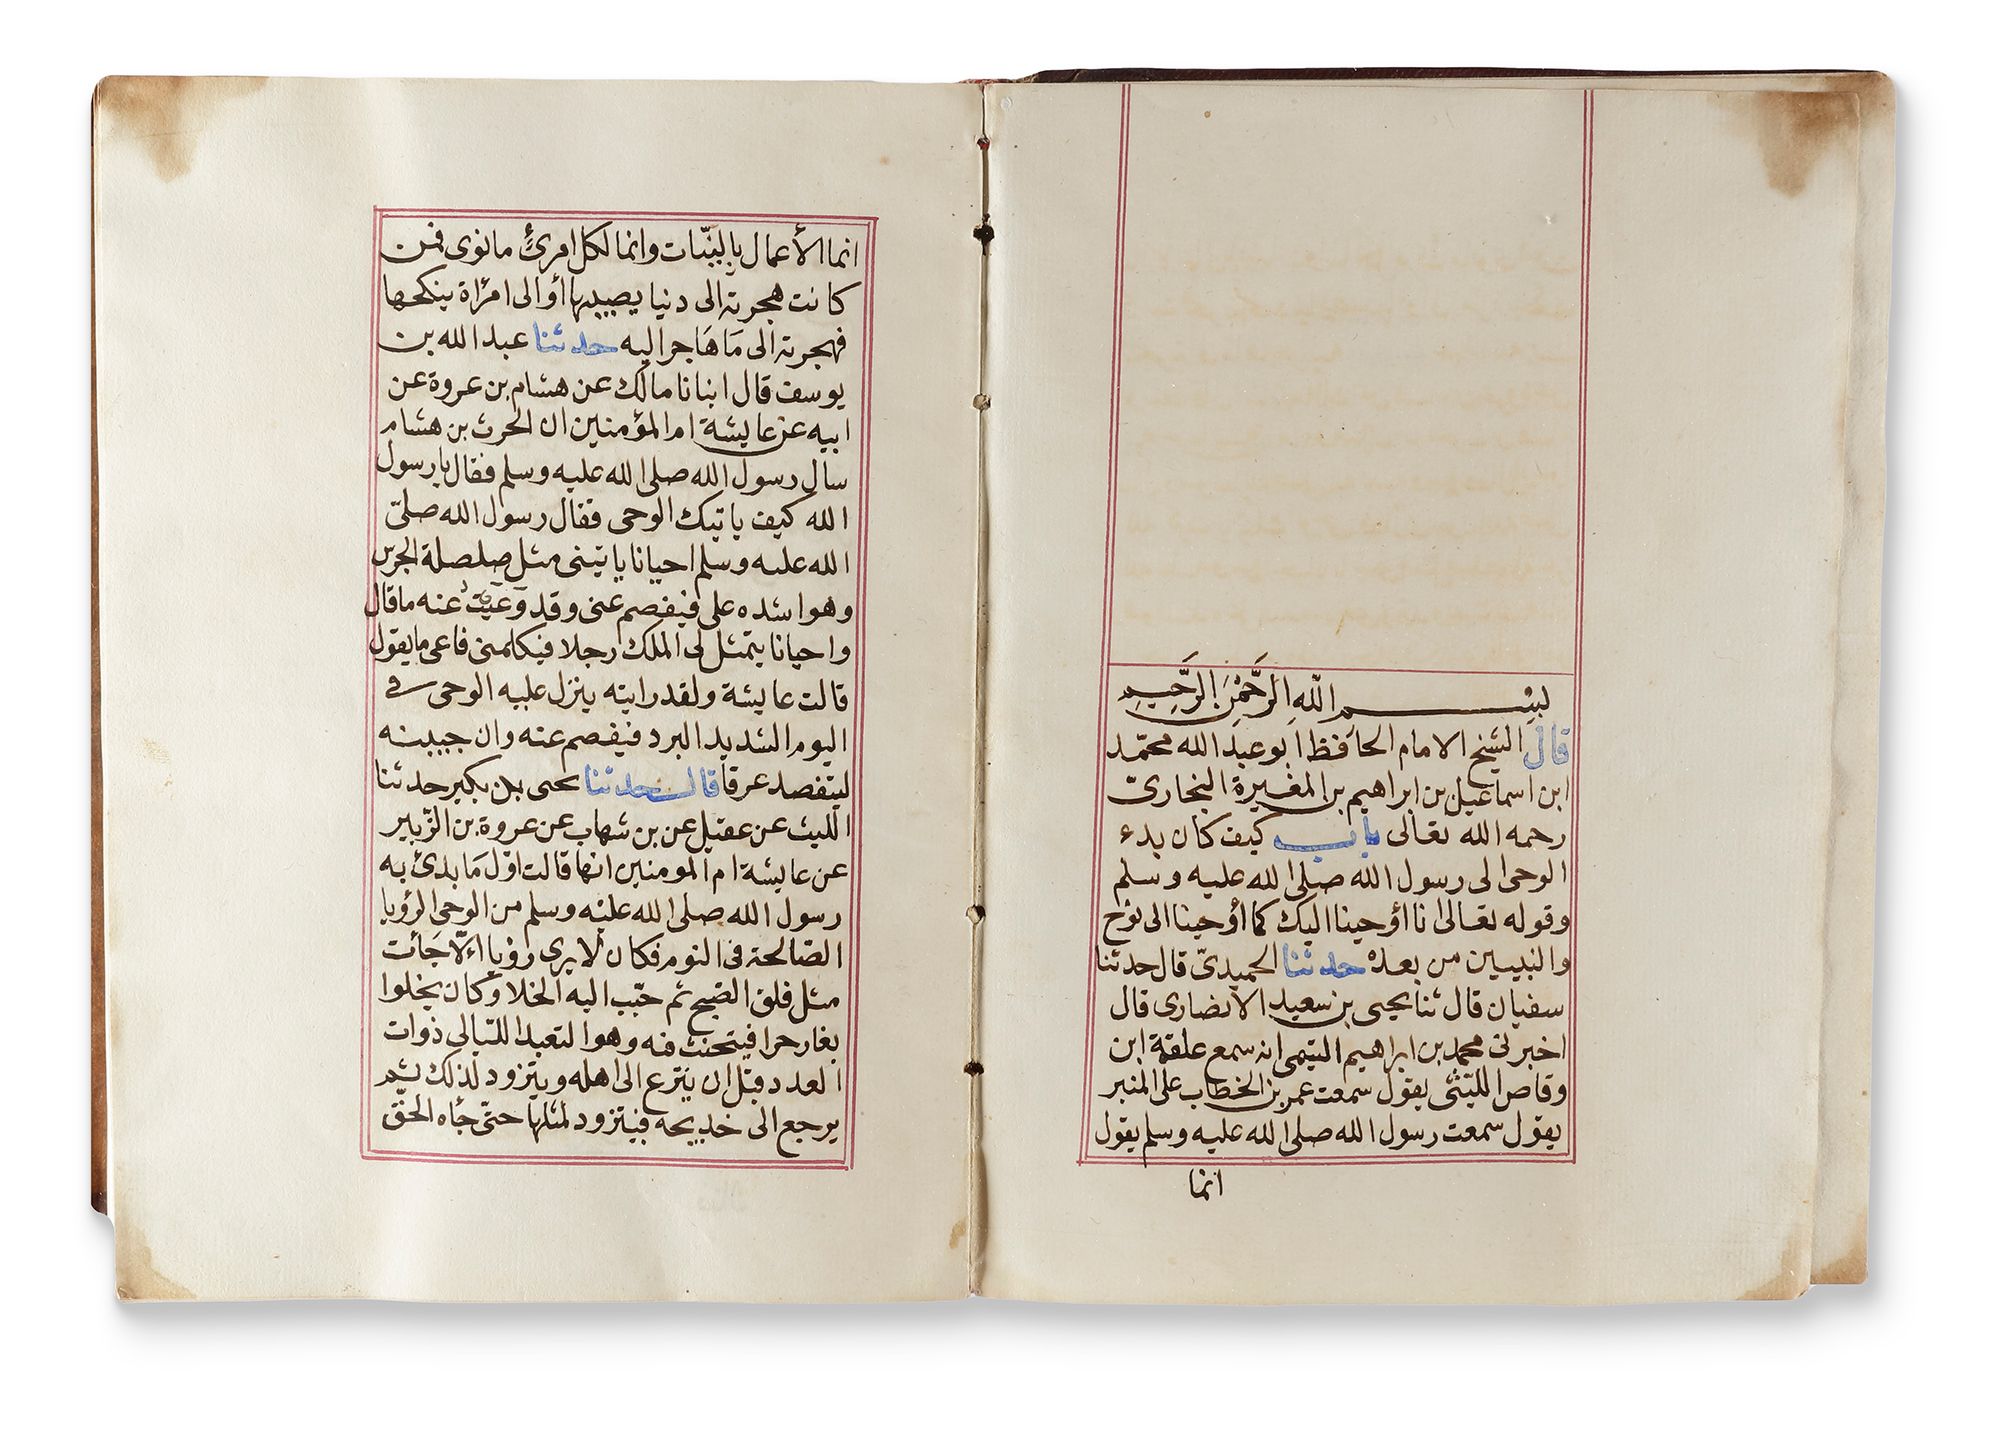 بسم الله الرحمن الرحيم
قال الشيخ الامام الحافظ ابو عبد الله محمد
ابن اسماعيل بن ابراهيم بن المغيرة البخاري
رحمه الله تعالى باب كيف كان بدء
الوحى الى رسول الله صلى الله عليه وسلم
وقوله تعالى انا أوحينا اليك كما أوحينا الى نوح
والنبيين من بعده حدثنا الحميدىّ قال حدثنا
سفيان قال ثنا يحيى بن سعيد الانصارى قال
اخبرنى محمد بن ابراهيم التيمى انه سمع علقمة ابن
وقاص الليثى يقول سمعت عمر بن الخطاب على المنبر
يقول سمعت رسول الله صلى الله عليه وسلم يقول
انما
انما الأعمال بالنيّات وانما لكل امرئ ما نوى فمن
كانت هجرته الى دنيا يصيبها أو الى امرأة ينكحها
فهجرته الى مَا هَاجر اليه حدثنا عبد الله بن
يوسف قال انبانا مالك عن هشام بن عروة عن
ابيه عن عايشة ام المؤمنين ان الحرث بن هشام
سال رسول الله صلى الله عليه وسلم فقال يا رسول
الله كيف ياتيك الوحى فقال رسول الله صلىّ
الله عليه وسلم احيانا ياتينى مثل صلصلة الجرس
وهو اشده على فيفصم عنى وقد وَعَيْتُ عنه ما قال
واحيانا يتمثل لى الملك رجلا فيكلمنى فاعى ما يقول
قالت عايشة ولقد رايته ينزل عليه الوحى فى
اليوم الشديد البرد فيفصم عنه وان جبينه
ليتفصد عرقا قال حدثنا يحيى بن بكير حدثنا
الليث عن عقيل عن بن شهاب عن عروة بن الزّبير
عن عايشة ام المومنين انها قالت اوّل مَا بدئ به
رسول الله صلى الله عليْه وسلم من الوحى الرؤيا
الصّالحة فى النوم فكان لا يرى رؤيا الّا جَائت
مثل فلق الصّبح ثم حبّب اليه الخلا وكان يخلوا
بغار حرا فيتحنث فيه وهو التعبد الليالى ذوات
العدد قبل ان ينزع الى اهله ويتزود لذلك ثم
يرجع الى خديجه فيتزود لمثلها حتّى جاه الحقّ